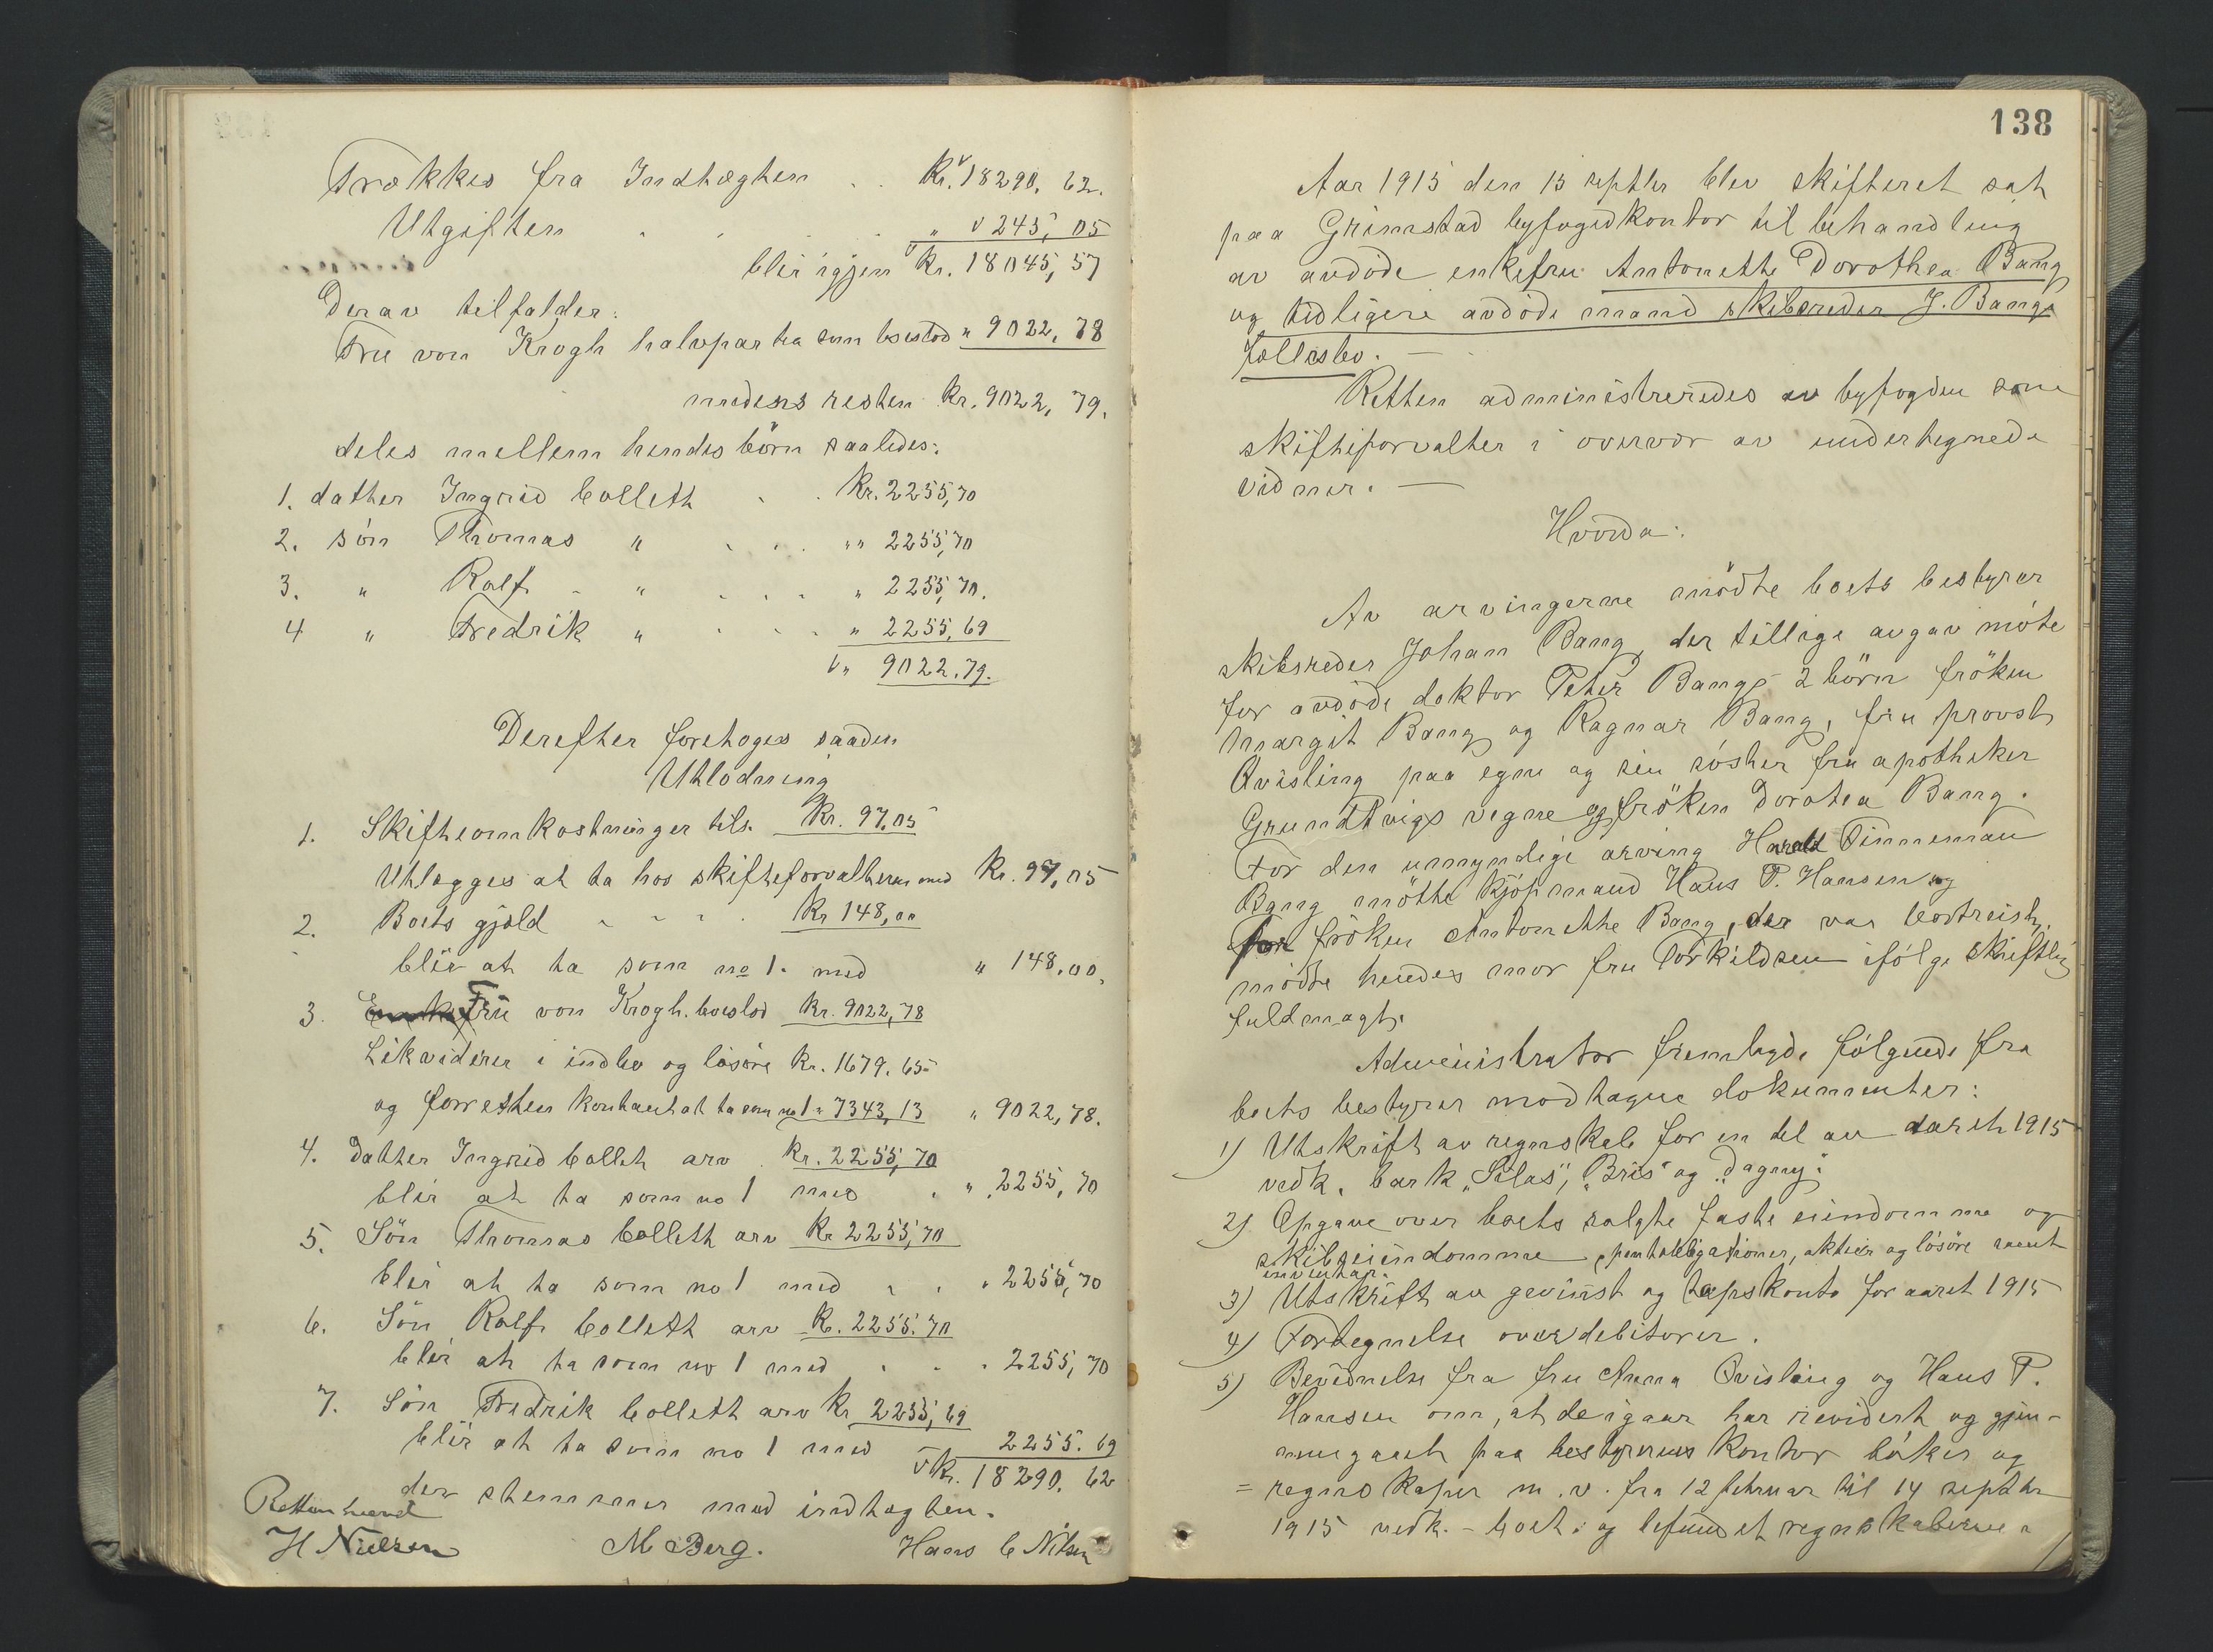 Trækkes fra Indtægten . . Kr. 18290, 62.
Utgiften . . . " 245, 05
blir igjen Kr. 18045, 57
Derav tilfalder:
Fru von Krogh halvparten som boeslod " 9022, 78
medens resten Kr. 9022, 79.
deles mellem hendes börn saaledes:
1. datter Ingrid Collett . . Kr. 2255,70
2. sön Thomas " . . . " 2255,70
3. " Rolf " . . . " 2255,70.
4 " Fredrik " . . . " 2255,69
" 9022.79.
Derefter foretoges saaden
Utlodning
1. Skifteomkostninger tils. Kr. 97,05
Utlægges at ta hos skifteforvalteren med Kr. 97,05
2. Boets gjæld . . . Kr 148,00
blir at ta som no 1. med " 148.00.
3. Fru von Krogh. boeslod Kr. 9022,78
Likviderer i indbo og lösöre Kr. 1679.65
og forresten kontant at ta som no 1 " 7343,13 " 9022,78.
4. Datter Ingrid Collett arv . Kr. 2255,70
blir at ta som no 1 med . " 2255,70
5. Sön Thomas Collett arv Kr 2255,70
blir at ta som no 1 med . . " 2255,70
6. Sön Rolf Collett arv Kr. 2255.70
blir at ta som no 1 med . . . 2255,70
7. Sön Fredrik Collett arv Kr 2255,69
blir at ta som no 1 med 2255.69
Kr. 18290.62
der stemmer med indtægten.
Retten hævet
H Nielsen M Berg. Hans C Nilsen
138
Aar 1915 den 15 septbr blev skifteret sat
paa Grimstad byfogedkontor til behandling
av avdöde enkefru Antonette Dorothea Bang
og tidligere avdöde mand skibsreder J. Bangs
fællesbo. —
Retten administreredes av byfogden som
skifteforvalter i overvær av undertegnede
vidner. —
Hvorda:
Av arvingerne mödte boets bestyrer
skibsreder Johan Bang, der tillige avgav möte
for avdöde doktor Peter Bangs 2 börn fröken
Margit Bang og Ragnar Bang, fru provst
Qvisling paa egne og sin söster fru apotheker
Grundtvigs vegne og fröken Dorotea Bang.
For den umyndige arving Harald Tinneman
Bang mötte kjöpmand Hans P. Hansen og
for fröken Antonette Bang, der var bortreist,
mödte hendes mor fru Torkildsen ifölge skriftlig
fuldmagt.
Administrator fremlagde fölgende fra
boets bestyrer modtagne dokumenter:
1) Utskrift av regnskab for en del av aaret 1915
vedk. bark "Silas", "Bris" og "Dagny".
2) Opgave over boets solgte faste eiendomme og
skibseiendomme, panteobligationer, aktier og lösöre samt
inventar.
3) Utskrift av gevinst og tapskonto for aaret 1915
4) Fortegnelse over debitorer.
5) Bevidnelse fra fru Anna Qvisling og Hans P.
Hansen om, at de igaar har revidert og gjen-
nemgaaet paa bestyrerens kontor böker og
= regnskaper m. v. fra 12 februar til 14 septbr
1915 vedk. boet og befundet regnskaberne